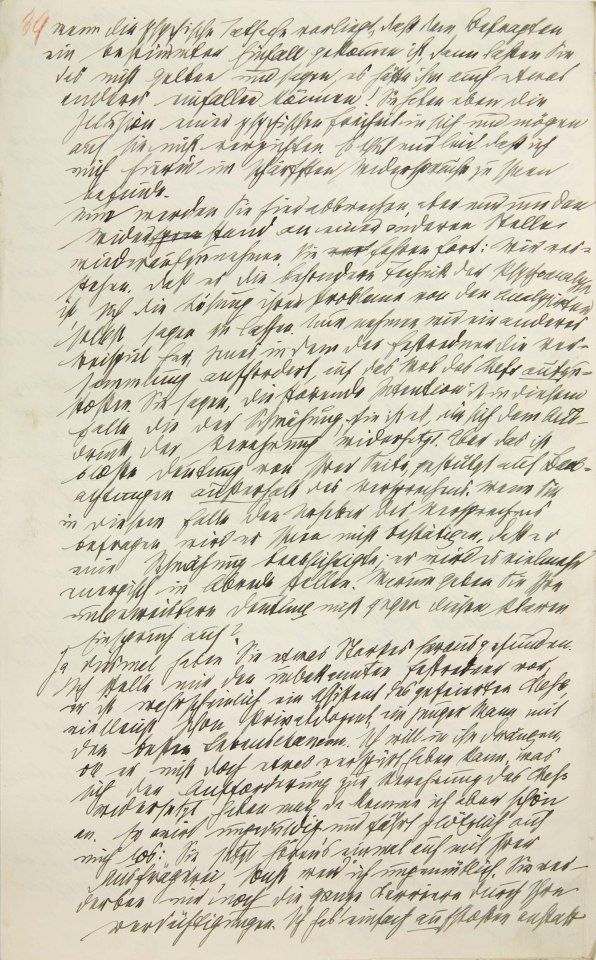 39 wenn die psychische Tatsache vorliegt, daß dem Befragten
ein bestimmter Einfall gekommen ist, dann lassen Sie
das nicht gelten und sagen es hätte ihm auch etwas
anderes einfallen können! Sie haben eben die
Illusion einer psychischen Freiheit in sich und mögen
auf sie nicht verzichten. Es thut mir leid, daß ich
mich hierin im schärfsten Widerspruche zu Ihnen
befinde.
Nun werden Sie hier abbrechen aber nur um den
Widerstand an einer anderen Stelle
wiederaufzunehmen. Sie fahren fort: Wir ver-
stehen, daß es die besondere Technik der Psychoanalyse
ist, sich die Lösung ihrer Probleme von den Analysirten
selbst sagen zu lassen. Nun nehmen wir ein anderes
Beispiel her, jenes in dem der Festredner die Ver-
sammlung auffordert, auf das Wol des Chefs aufzu-
stoßen. Sie sagen, die störende Intention ist in diesem
Falle die der Schmähung. Sie ist es, die sich dem Aus-
druck der Verehrung widersetzt. Aber das ist
bloße Deutung von Ihrer Seite, gestützt auf Beob-
achtungen außerhalb des Versprechens. Wenn Sie
in diesem Falle den Urheber des Versprechens
befragen, wird er Ihnen nicht bestätigen, daß er
eine Schmähung beabsichtigte; er wird es vielmehr
energisch in Abrede stellen. Warum geben Sie Ihre
unbeweisbare Deutung nicht gegen diesen klaren
Einspruch auf?
Ja diesmal haben Sie etwas Starkes herausgefunden.
Ich stelle mir den unbekannten Festredner vor,
er ist wahrscheinlich ein Assistent des gefeierten Chefs,
vielleicht schon Privatdozent, ein junger Mann mit
den besten Lebenschancen. Ich will in ihn drängen,
ob er nicht doch etwas verspürt haben kann, was
sich der Aufforderung zur Verehrung des Chefs
widersetzt haben mag. Da komme ich aber schön
an. Er wird ungeduldig und fährt plötzlich auf
mich los: „Sie, jetzt hören's einmal auf mit Ihrer
Ausfragerei, sonst werd ich ungemütlich. Sie ver-
derben mir noch die ganze Karriere durch Ihre
Verdächtigungen. Ich hab einfach aufstoßen anstatt